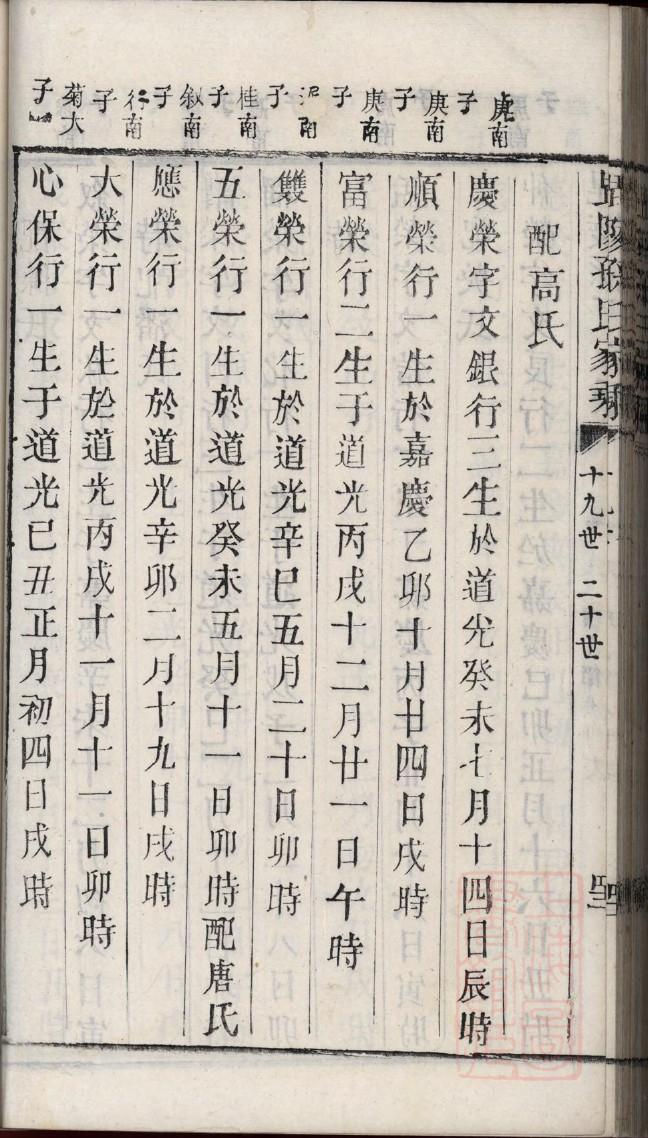 孫氏家乘
十九世 二十世
配高氏
庚南子
慶榮字文銀行三生於道光癸未七月十四日辰時
庚南子
順榮行一生於嘉慶乙卯十月廿四日戌時
庚南子
富榮行二生于道光丙戌十二月廿一日午時
南子
雙榮行一生於道光辛巳五月二十日卯時
桂南子
五榮行一生於道光癸未五月十一日卯時配唐氏
叙南子
應榮行一生於道光辛卯二月十九日戌時
行南子
大榮行一生於道光丙戌十一月十一日卯時
菊大子
心保行一生于道光已丑正月初四日戌時